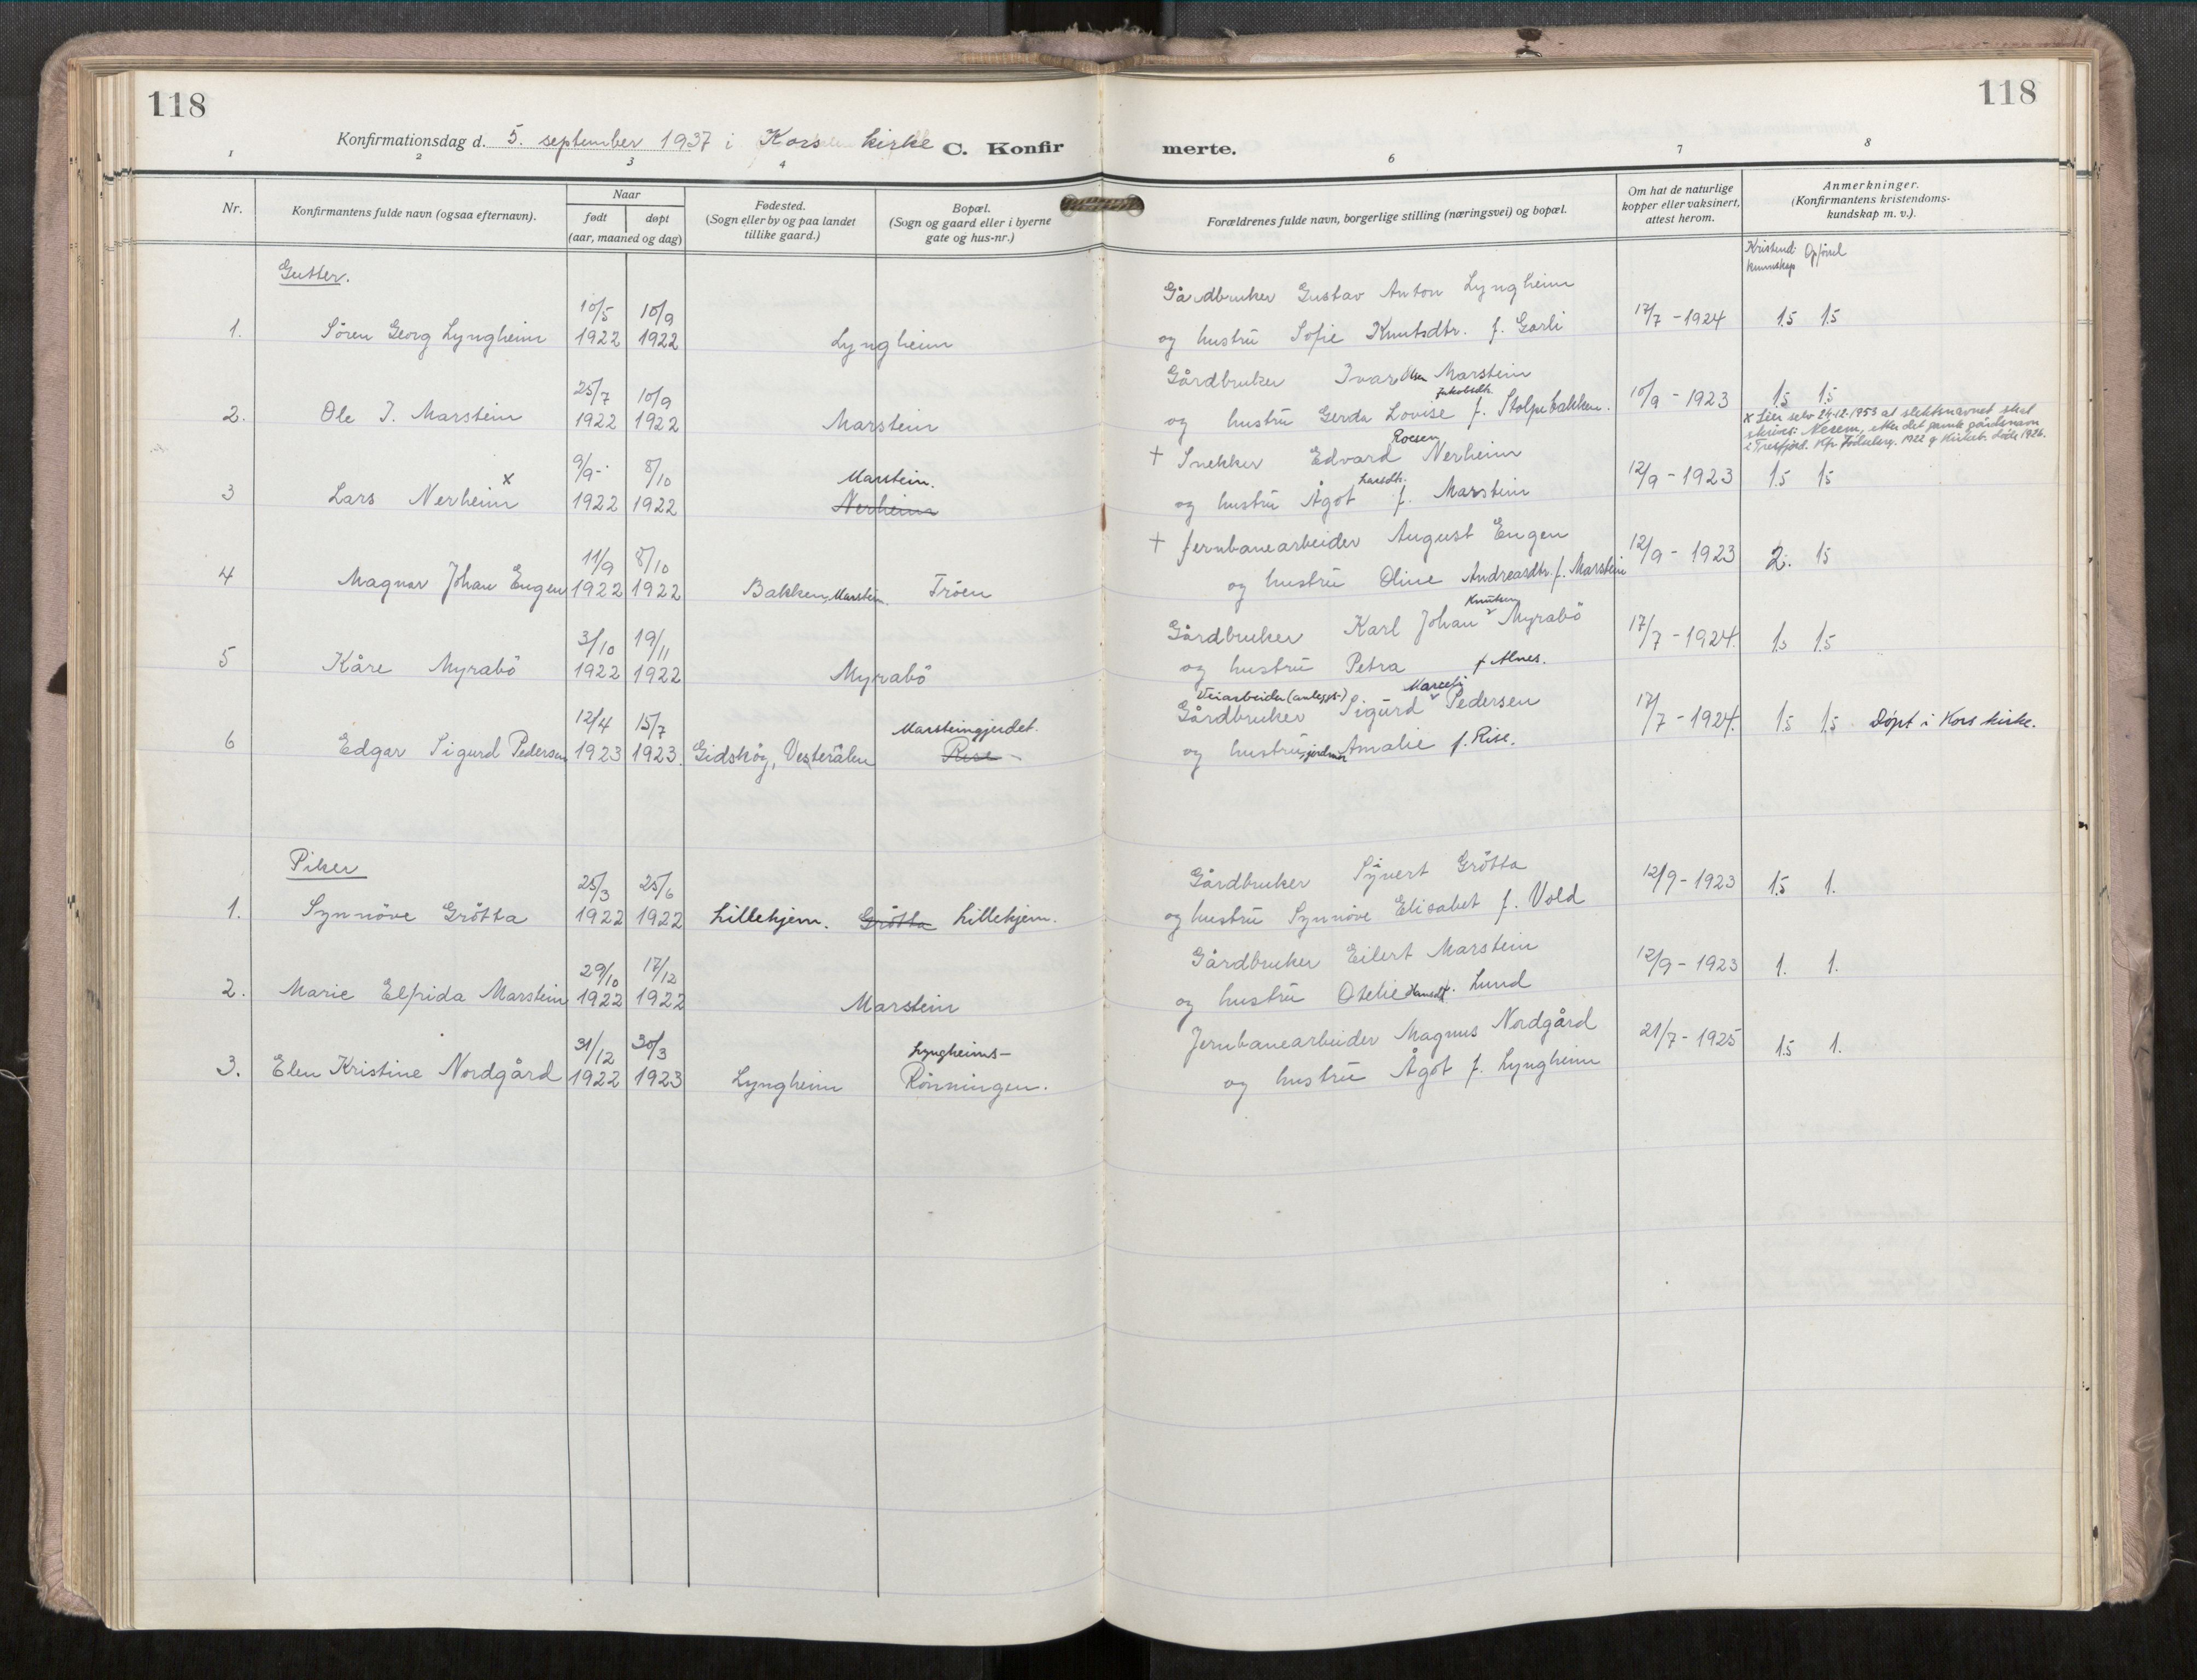 118
118
Konfirmationsdag d. 5. september 1937 i Kors kirke C. Konfir merte.
1 2 3 4 6 7 8
Nr.
Konfirmantens fulde navn (ogsaa efternavn).
Naar
født døpt
(aar, maaned og dag)
Fødested.
(Sogn eller by og paa landet
tillike gaard.)
Bopæl.
(Sogn og gaard eller i byerne
gate og hus-nr.)
Forældrenes fulde navn, borgerlige stilling (næringsvei) og bopæl.
Om hat de naturlige
kopper eller vaksinert,
attest herom.
Anmerkninger.
(Konfirmantens kristendoms-
kundskap m. v.).
Kristend. Opførsel
kunnskap
Gutter.
10/5 10/9 Gårdbruker Gustav Anton Lyngheim
1. Sören Georg Lyngheim 1922 1922 Lyngheim og hustrü Sofie Knutsdtr. f. Gorli 17/7 - 1924 1.5 1.5
25/7 10/9 Gårdbruker Ivar Olsen Marstein
Jakobsdtr.
2. Ole I. Marstein 1922 1922 Marstein og hustrü Gerda Lovise f. Stolpebakken. 10/9 - 1923 1.5 1.5
x Sier selv 24-12-1953 at slektsnavnet skal
skrives: Nesem, etter det gamle gårdsnavn
i Tresfjord. 1922 1926.
Roesen
9/9 8/10 Marstein. + Snekker Edvard Nerheim
Larsdtr.
3 Lars Nerheim x 1922 1922 Nerheim og hustrü Ågot f. Marstein 12/9 - 1923 1.5 1.5
11/9 8/10 + Jernbanearbeider August Engen
4 Magnar Johan Engen 1922 1922 Bakken, Marstein. Tröen og hustrü Oline Andreasdtr. f. Marstein 12/9 - 1923 2. 1.5
Knutsen
3/10 19/11 Gårdbruker Karl Johan Myrabö
5 Kåre Myrabö 1922 1922 Myrabö og hustrü Petra f. Alnes. 17/7 - 1924. 1.5 1.5
Veiarbeider (anleggs-)
12/4 15/7 Marsteingjerdet. Gårdbruker Sigurd Pedersen
6 Edgar Sigurd Pedersen 1923 1923. Gidskög, Vesterålen Rise og hustrü, jordmor Amalie f. Rise. 17/7 - 1924. 1.5 1.5 Döpt i Kors kirke.
Piker
25/3 25/6 Gårdbruker Syvert Grötta
1. Synnöve Grötta 1922 1922 Lillehjem. Grötta Lillehjem. og hustrü Synnöve Elisabet f. Vold 12/9 - 1923 1.5 1.
29/10 17/12 Gårdbruker Eilert Marstein
2. Marie Elfrida Marstein 1922 1922 Marstein og hustrü Otelie Hansdt. f. Lund 12/9 - 1923 1. 1.
31/12 30/3 Lyngheims- Jernbanearbeider Magnus Nordgård
3. Elen Kristine Nordgård 1922 1923 Lyngheim Rönningen. og hustrü Ågot f. Lyngheim 21/7 - 1925 1.5 1.